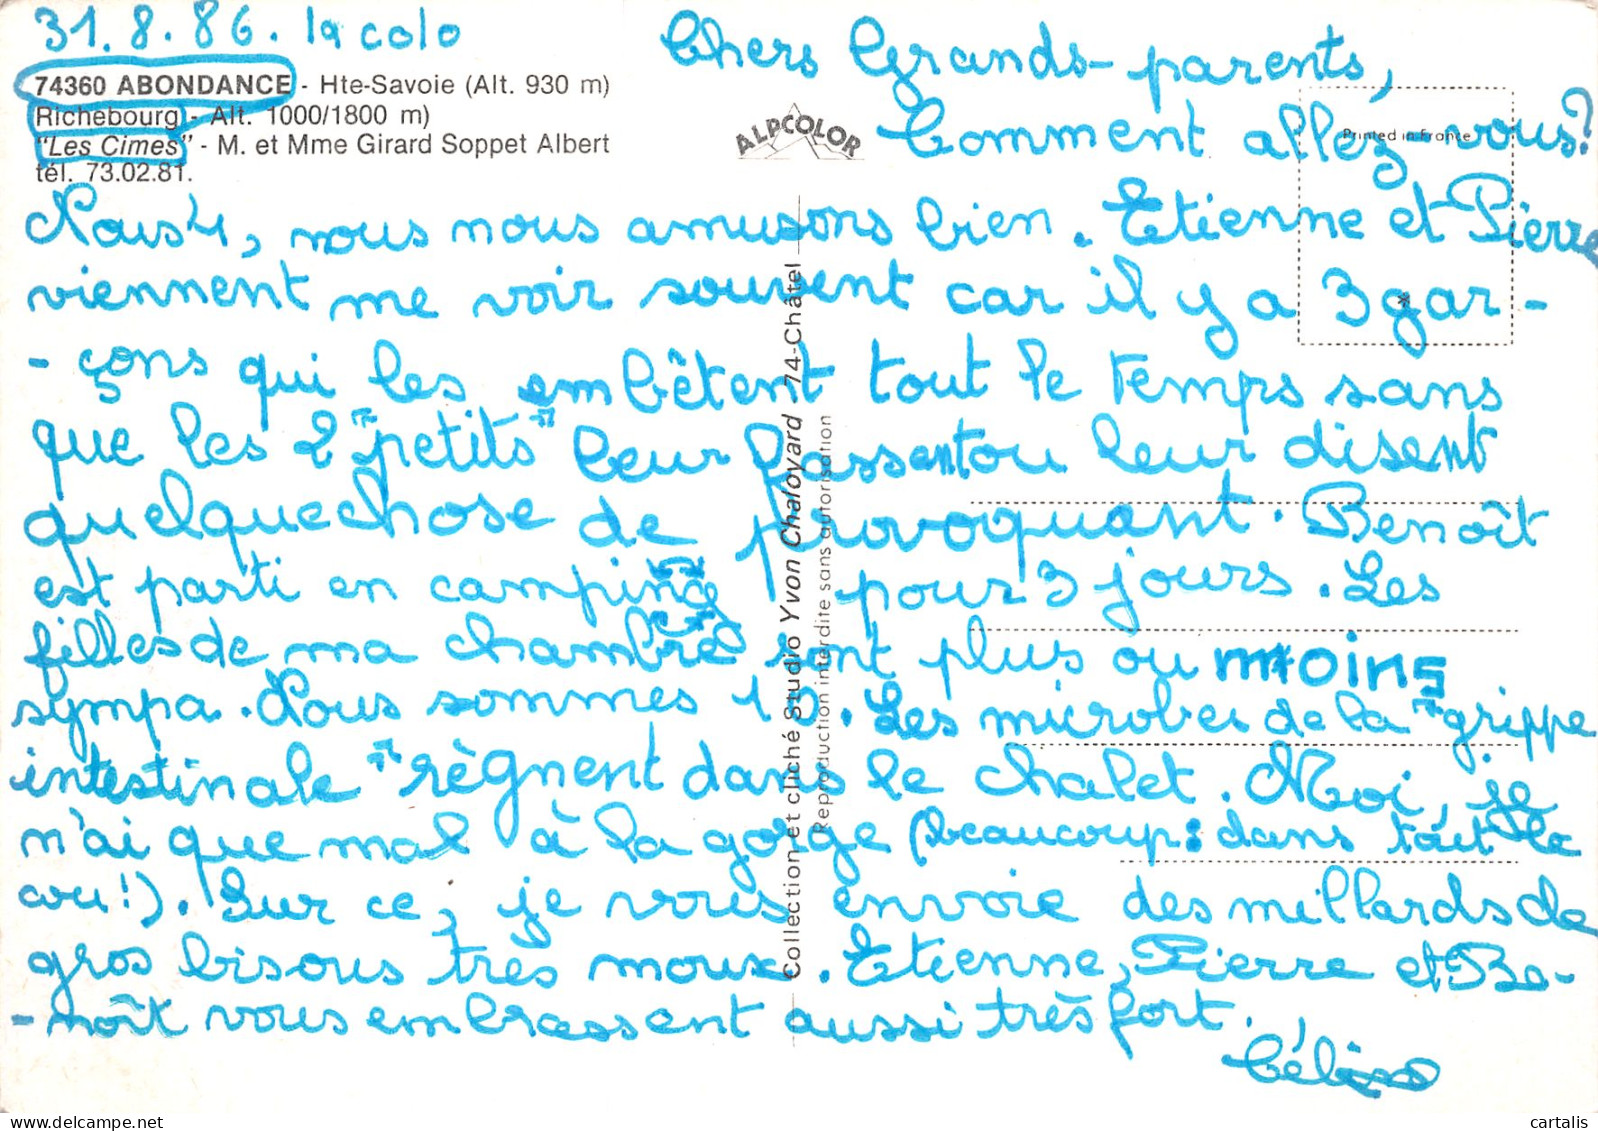 31.8.86. la colo
74360 ABONDANCE - Hte-Savoie (Alt. 930 m)
Richebourg - Alt. 1000/1800 m)
"Les Cimes" - M. et Mme Girard Soppet Albert
tél. 73.02.81.
ALPCOLOR
Printed in France
Chers Grands-parents,
Comment allez-vous?
Nous 4, nous nous amusons bien. Etienne et Pierre
viennent me voir souvent car il y a 3 gar-
-çons qui les embêtent tout le temps sans
que les 2 "petits" leur fassent ou leur disent
quelque chose de provoquant. Benoît
est parti en camping pour 3 jours. Les
filles de ma chambre sont plus ou moins
sympa. Nous sommes 10. Les microbes de la "grippe
intestinale" règnent dans le chalet. Moi, je
n'ai que mal à la gorge (beaucoup: dans tout le
cou!). Sur ce, je vous envoie des millards de
gros bisous très moux. Etienne, Pierre et Be-
-noît vous embrassent aussi très fort.
Céline
Collection et cliché Studio Yvon Chaloyard 74-Châtel
Reproduction interdite sans autorisation
cartalis